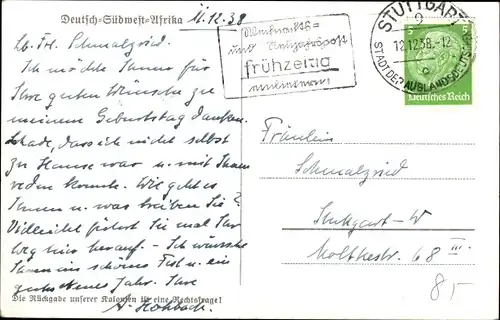 Deutsch-Südwest-Afrika
11.12.38
Lb. Frl. Schmalzried.
Ich möchte Ihnen für
Ihre guten Wünsche zu
meinem Geburtstag danken.
Schade, dass ich nicht selbst
zu Hause war u. mit Ihnen
reden konnte. Wie geht es
Ihnen u. was treiben Sie?
Vielleicht führt Sie mal Ihr
Weg hier herauf. - Ich wünsche
Ihnen ein schönes Fest u. ein
gutes neues Jahr. Ihre
A. Hohbach.
Die Rückgabe unserer Kolonien ist eine Rechtsfrage!
Weihnachts-
und Neujahrspost
frühzeitig
einliefern
STUTTGART
9
12.12.38.-12
STADT DER AUSLANDSDEUTSCHEN
5
5
Deutsches Reich
Fräulein
Schmalzried
Stuttgart-W
Moltkestr. 68 III.
85